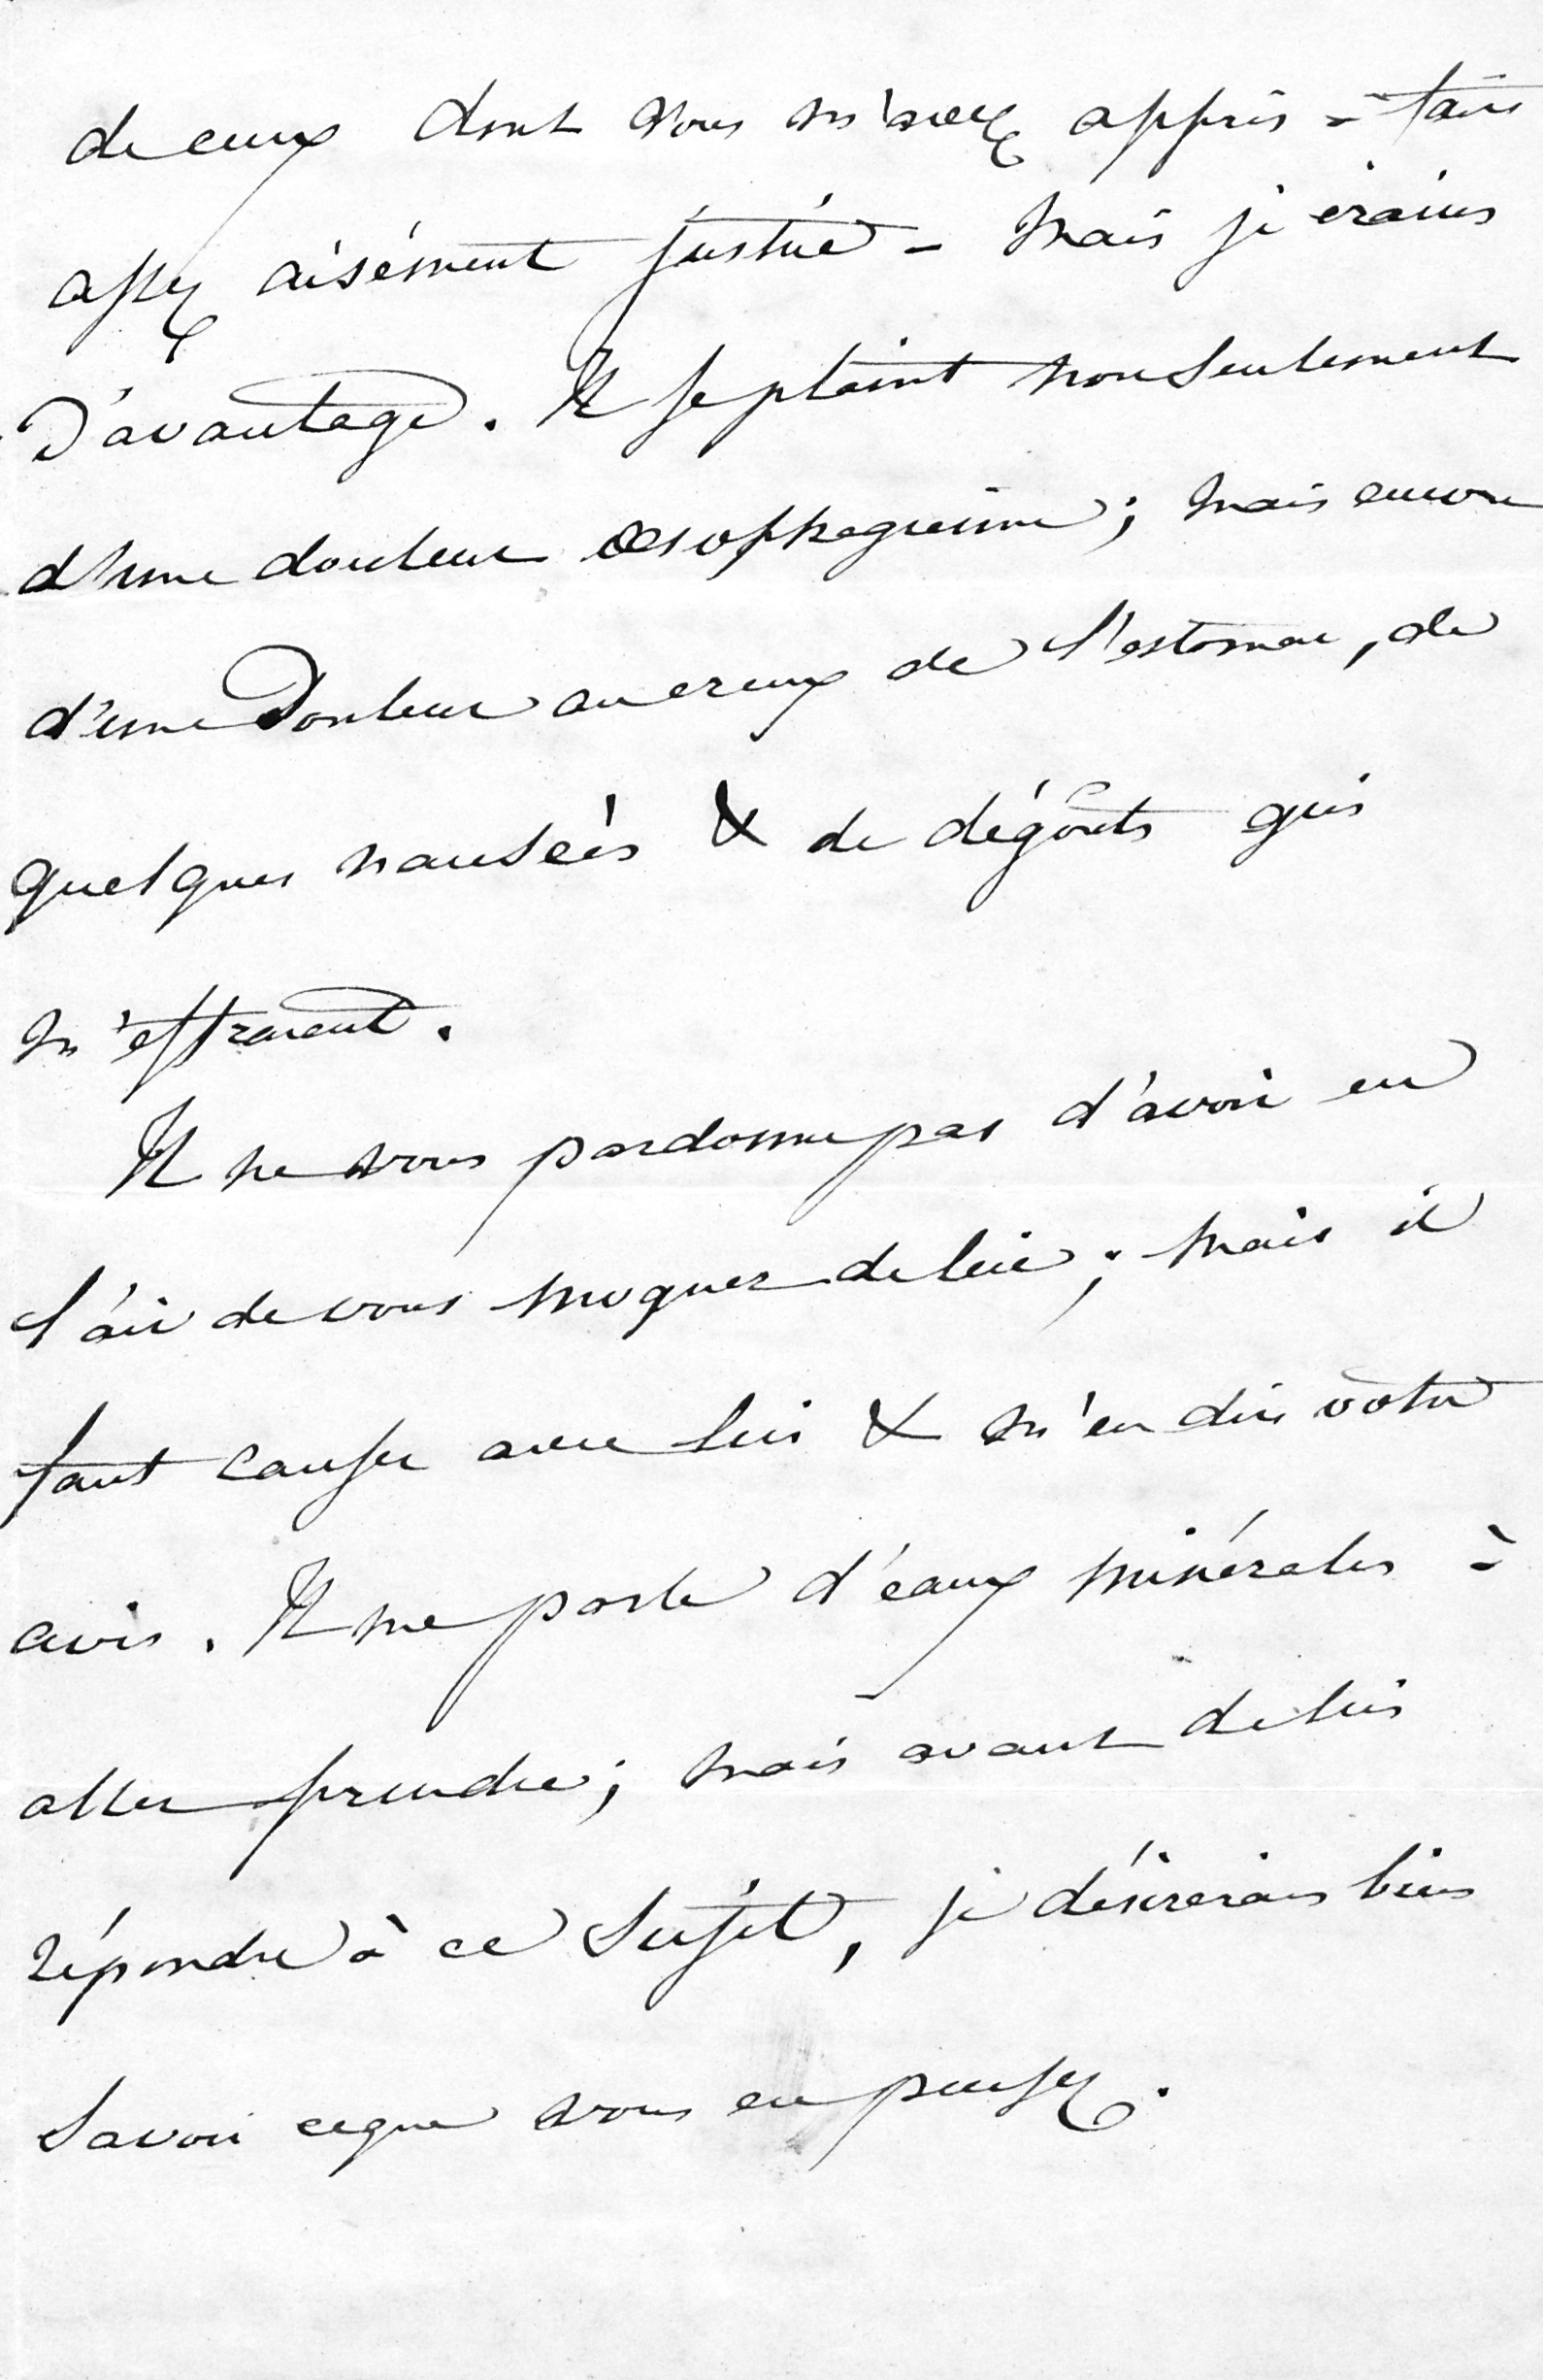 de ceux dont vous m'avez appris à faire
assez aisément justice - Mais je crains
d'avantage. Il se plaint non seulement
d'une douleur œsophagienne ; mais encore
d'une Douleur au creux de l'estomac, de
quelques nausées & de dégoûts qui
m'effraient.
Il ne vous pardonne pas d'avoir eu
l'air de vous moquer de lui ; mais il
faut causer avec lui & m'en dire votre
avis. Il me parle d'eaux minérales à
aller prendre ; mais avant de lui
répondre à ce Sujet, je désirerais bien
Savoir ce que vous en pensez.